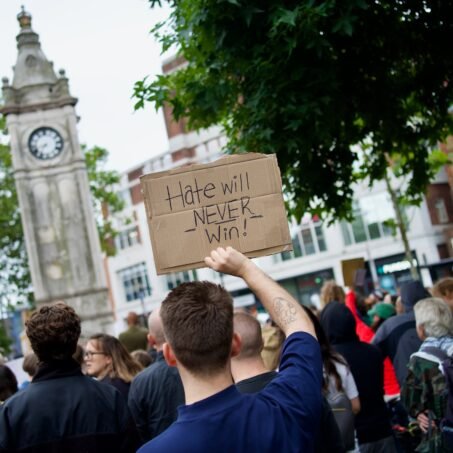 Hate will
-NEVER-
Win!